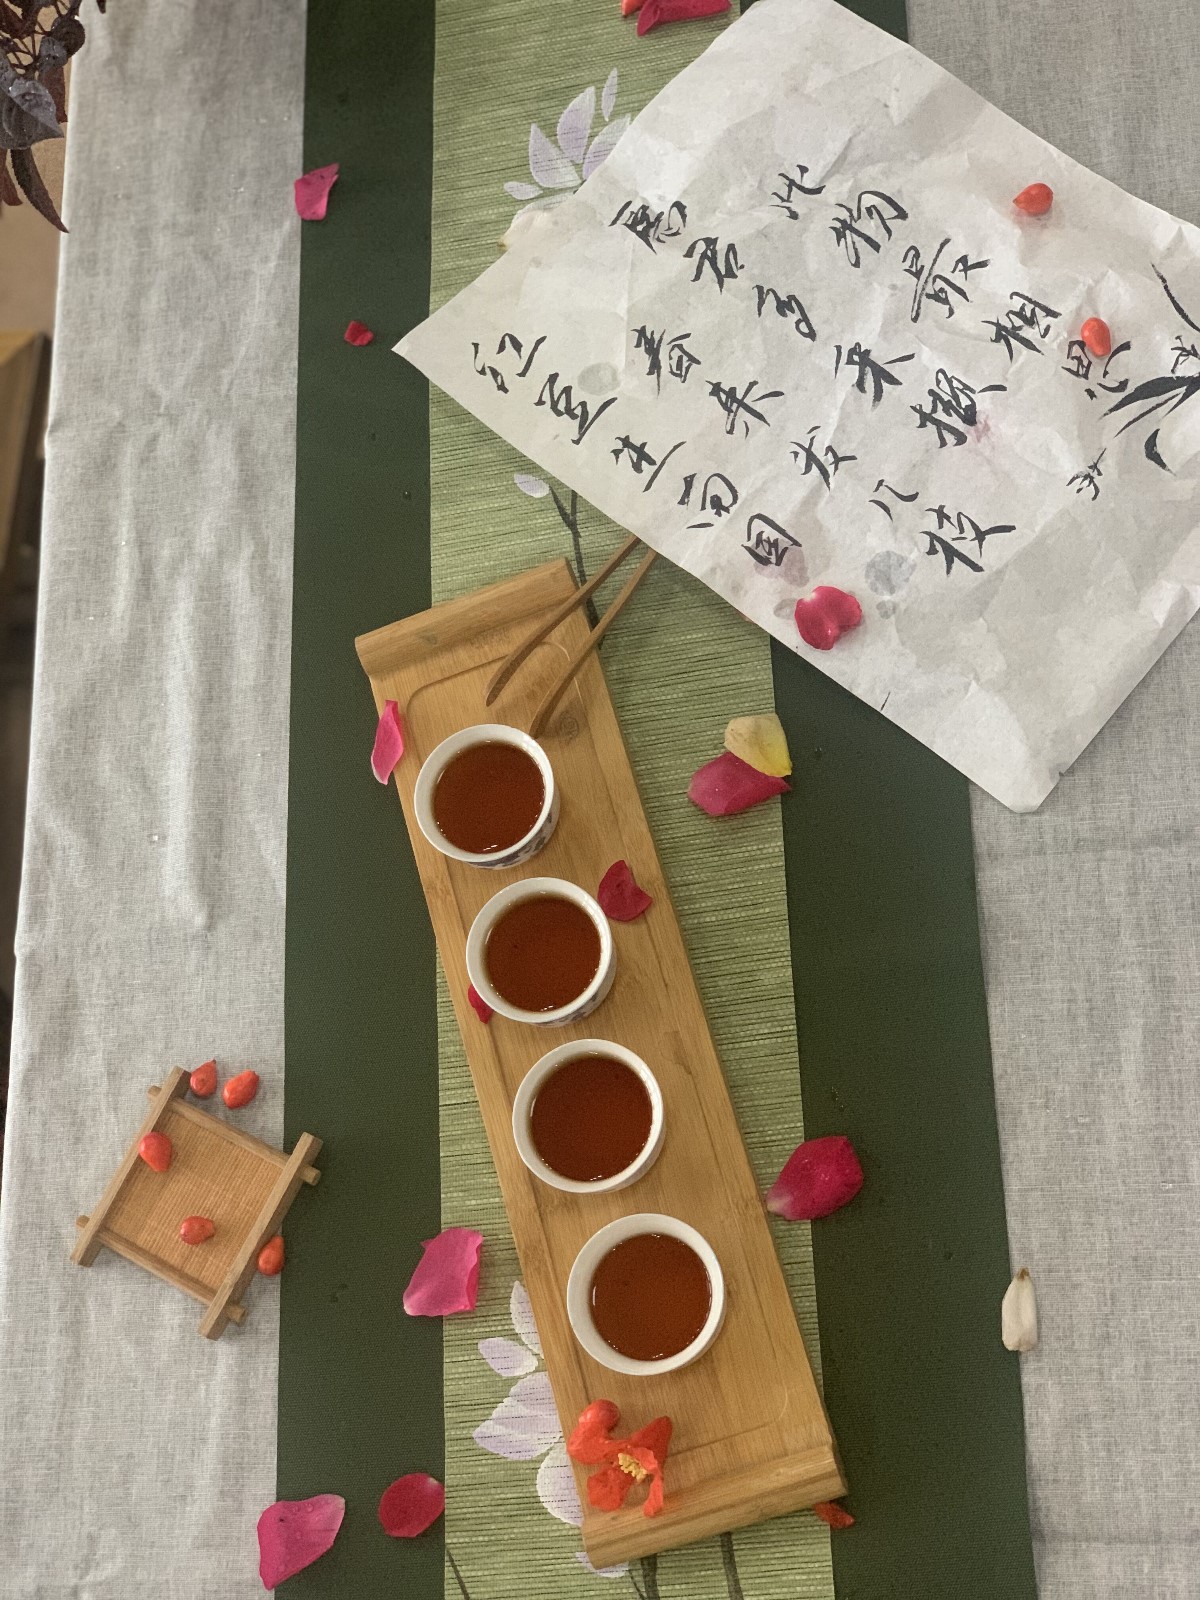 红豆生南国
春来发几枝
愿君多采撷
此物最相思